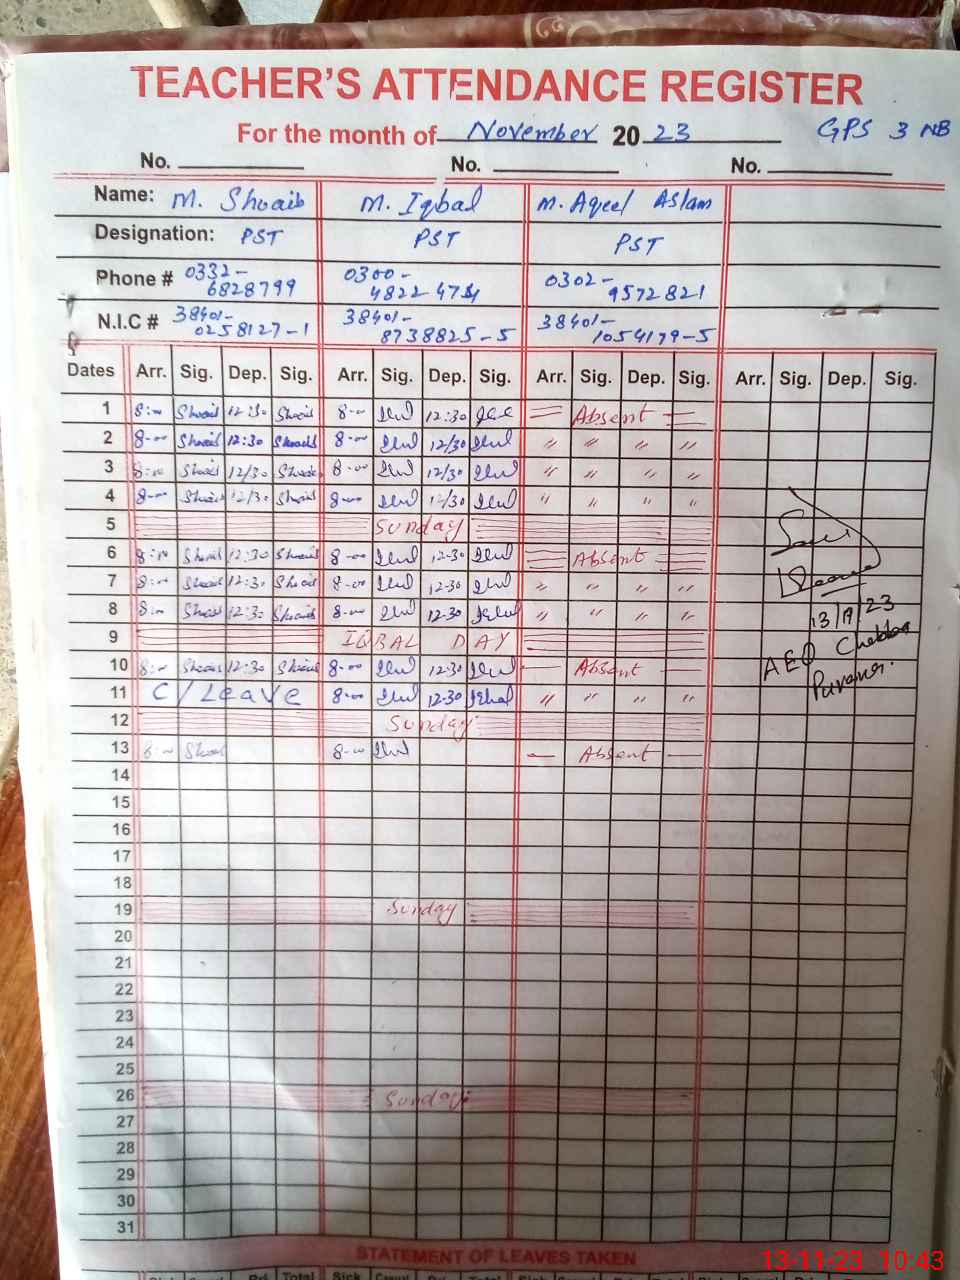 TEACHER'S ATTENDANCE REGISTER
For the month of November 20 23 GPS 3 NB
No. No. No.
Name: M. Shoaib M. Iqbal M. Aqeel Aslam
Designation: PST PST PST
Phone # 0332-6828799 0300-4822474 0302-9572821
N.I.C # 38401-0258127-1 38401-8738825-5 38401-1054179-5
Dates Arr. Sig. Dep. Sig. Arr. Sig. Dep. Sig. Arr. Sig. Dep. Sig. Arr. Sig. Dep. Sig.
1 8:00 Shoaib 12:30 Shoaib 8-00 12:30 Absent
2 8-00 Shoaib 12:30 Shoaib 8-00 12/30 " " " "
3 8:00 Shoaib 12/30 Shoaib 8-00 12/30 " " " "
4 8-00 Shoaib 12/30 Shoaib 8-00 12/30 " " " "
5 Sunday
6 8:00 Shoaib 12:30 Shoaib 8-00 12-30 Absent
7 8:00 Shoaib 12:30 Shoaib 8-00 12-30 " " " "
8 8:00 Shoaib 12:30 Shoaib 8-00 12-30 " " " "
9 IQBAL DAY
10 8:00 Shoaib 12:30 Shoaib 8-00 12:30 Absent
11 C/Leave 8-00 12-30 Iqbal " " " "
12 Sunday
13 8-00 Shoaib 8-00 Absent
14
15
16
17
18
19 Sunday
20
21
22
23
24
25
26 Sunday
27
28
29
30
31
AEO
STATEMENT OF LEAVES TAKEN
13-11-23 10:43